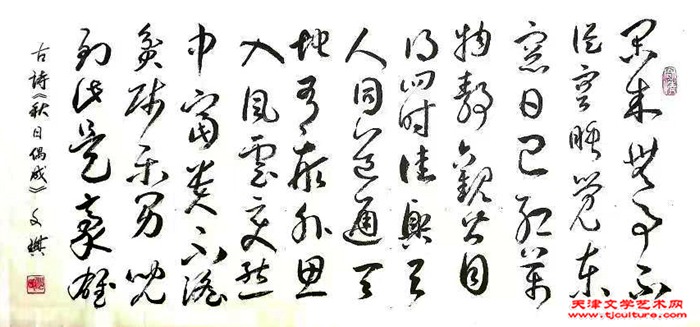 闲来無事不
從容睡觉東
窗日已红萬
物静觀皆自
得四时佳興与
人同道通天
地有形外思
入風雲变態
中富贵不淫
贫賤乐男兒
到此是豪雄
古詩《秋日偶成》 文
天津文学艺术网
www.tjculture.com